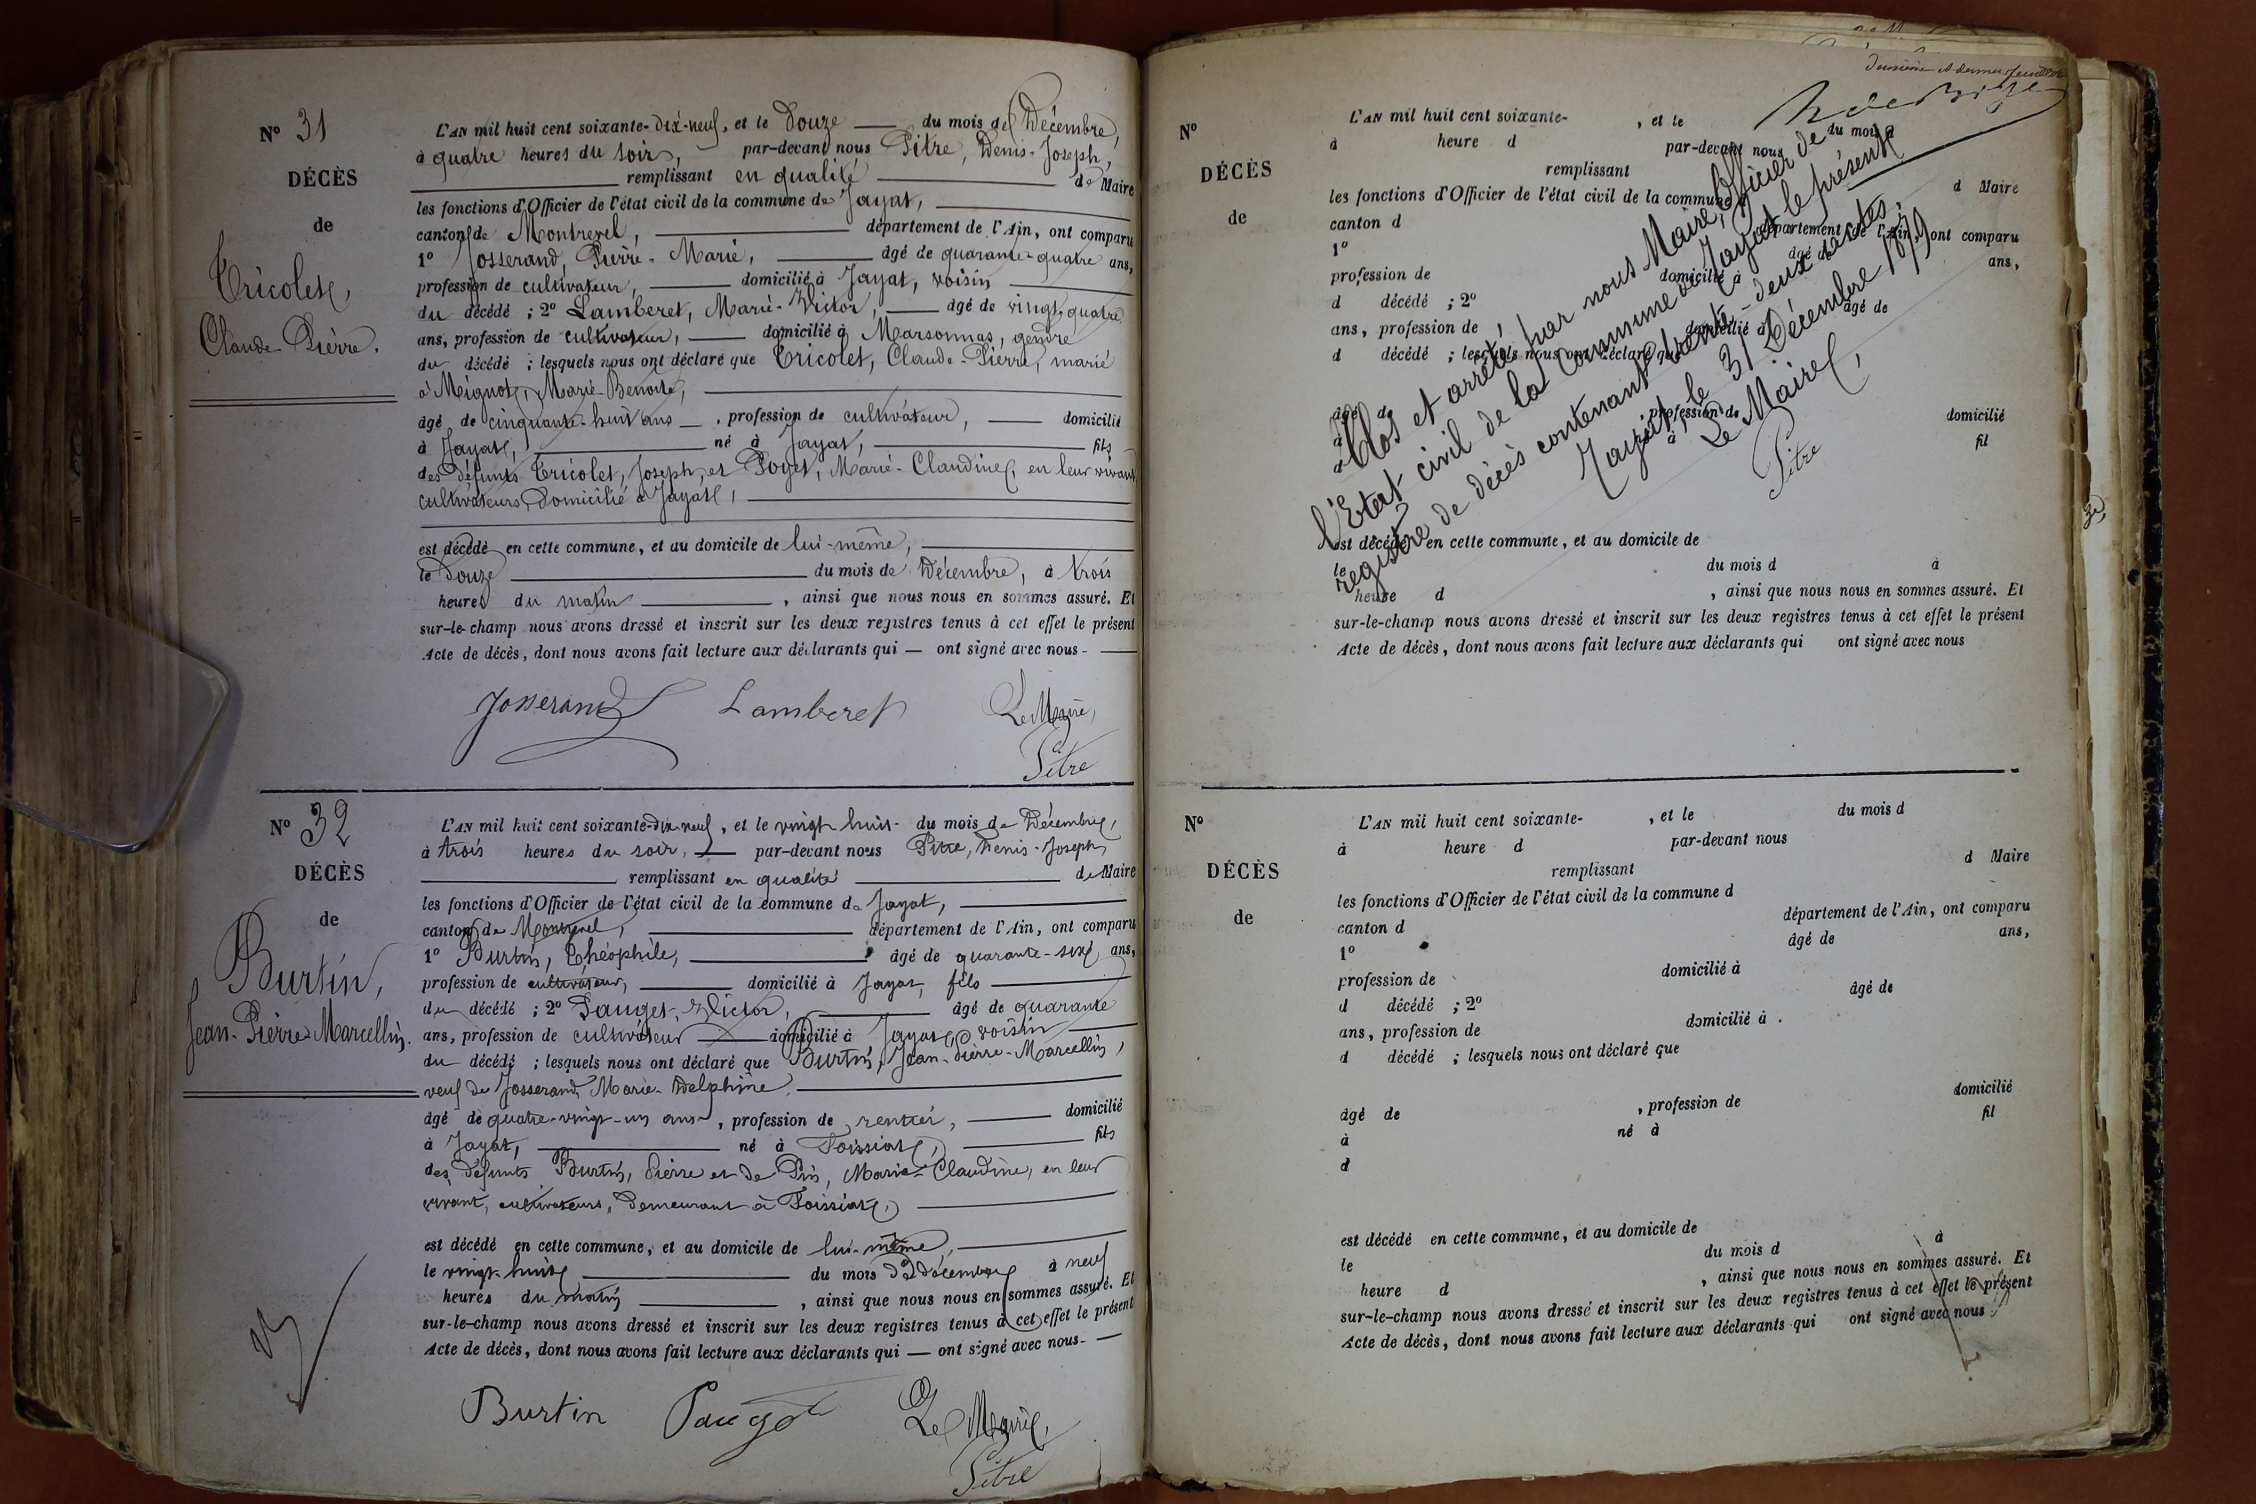 Nº 31
DÉCÈS
de
Tricolet,
Claude-Pierre.
L'AN mil huit cent soixante-dix-neuf, et le douze du mois de Décembre,
à quatre heures du soir, par-devant nous Pitre, Denis-Joseph,
remplissant en qualité de Maire
les fonctions d'Officier de l'état civil de la commune de Jayat,
canton de Montrevel, département de l'Ain, ont comparu
1º Josserand, Pierre-Marie, âgé de quarante-quatre ans,
profession de cultivateur, domicilié à Jayat, voisin
du décédé ; 2º Lamberet, Marie-Victor, âgé de vingt-quatre
ans, profession de cultivateur, domicilié à Marsonnas, gendre
du décédé ; lesquels nous ont déclaré que Tricolet, Claude-Pierre, marié
à Mignot, Marie-Benoite,
âgé de cinquante-huit ans, profession de cultivateur, domicilié
à Jayat, né à Jayat, fils
des défunts Tricolet, Joseph, et Poyet, Marie-Claudine, en leur vivant
cultivateurs, domicilié à Jayat,
est décédé en cette commune, et au domicile de lui-même,
le douze du mois de Décembre, à trois
heures du matin, ainsi que nous nous en sommes assuré. Et
sur-le-champ nous avons dressé et inscrit sur les deux registres tenus à cet effet le présent
Acte de décès, dont nous avons fait lecture aux déclarants qui — ont signé avec nous -
Josserand Lamberet Le Maire,
Pitre
Nº 32
DÉCÈS
de
Burtin,
Jean-Pierre-Marcellin.
L'AN mil huit cent soixante-dix-neuf, et le vingt-huit du mois de Décembre,
à trois heures du soir, par-devant nous Pitre, Denis-Joseph
remplissant en qualité de Maire
les fonctions d'Officier de l'état civil de la commune de Jayat,
canton de Montrevel, département de l'Ain, ont comparu
1º Burtin, Théophile, âgé de quarante-six ans,
profession de cultivateur, domicilié à Jayat, fils
du décédé ; 2º Pauget, Victor, âgé de quarante
ans, profession de cultivateur domicilié à Jayat, voisin
du décédé ; lesquels nous ont déclaré que Burtin, Jean-Pierre-Marcellin,
veuf de Josserand, Marie-Delphine,
âgé de quatre-vingt-un ans, profession de rentier, domicilié
à Jayat, né à Foissiat, fils
des défunts Burtin, Pierre et de Pin, Marie-Claudine, en leur
vivant, cultivateurs, demeurant à Foissiat,
est décédé en cette commune, et au domicile de lui-même,
le vingt-huit du mois de décembre à neuf
heures du matin, ainsi que nous nous en sommes assuré. Et
sur-le-champ nous avons dressé et inscrit sur les deux registres tenus à cet effet le présent
Acte de décès, dont nous avons fait lecture aux déclarants qui — ont signé avec nous -
Burtin Pauget Le Maire,
Pitre
Nº
DÉCÈS
de
L'AN mil huit cent soixante- , et le du mois d
à heure d par-devant nous
remplissant d Maire
les fonctions d'Officier de l'état civil de la commune d
canton d département de l'Ain, ont comparu
1º âgé de ans,
profession de domicilié à
d décédé ; 2º âgé de
ans, profession de domicilié à
d décédé ; lesquels nous ont déclaré que
âgé de , profession de domicilié
à né à fil
d
est décédé en cette commune, et au domicile de
le du mois d à
heure d , ainsi que nous nous en sommes assuré. Et
sur-le-champ nous avons dressé et inscrit sur les deux registres tenus à cet effet le présent
Acte de décès, dont nous avons fait lecture aux déclarants qui ont signé avec nous
Clos et arrêté par nous Maire, Officier de
l'Etat civil de la Commune de Jayat le présent
registre de décès contenant trente-deux actes.
Jayat, le 31 Décembre 1879
Le Maire,
Pitre
Nº
DÉCÈS
de
L'AN mil huit cent soixante- , et le du mois d
à heure d par-devant nous
remplissant d Maire
les fonctions d'Officier de l'état civil de la commune d
canton d département de l'Ain, ont comparu
1º âgé de ans,
profession de domicilié à
d décédé ; 2º âgé de
ans, profession de domicilié à
d décédé ; lesquels nous ont déclaré que
âgé de , profession de domicilié
à né à fil
d
est décédé en cette commune, et au domicile de
le du mois d à
heure d , ainsi que nous nous en sommes assuré. Et
sur-le-champ nous avons dressé et inscrit sur les deux registres tenus à cet effet le présent
Acte de décès, dont nous avons fait lecture aux déclarants qui ont signé avec nous